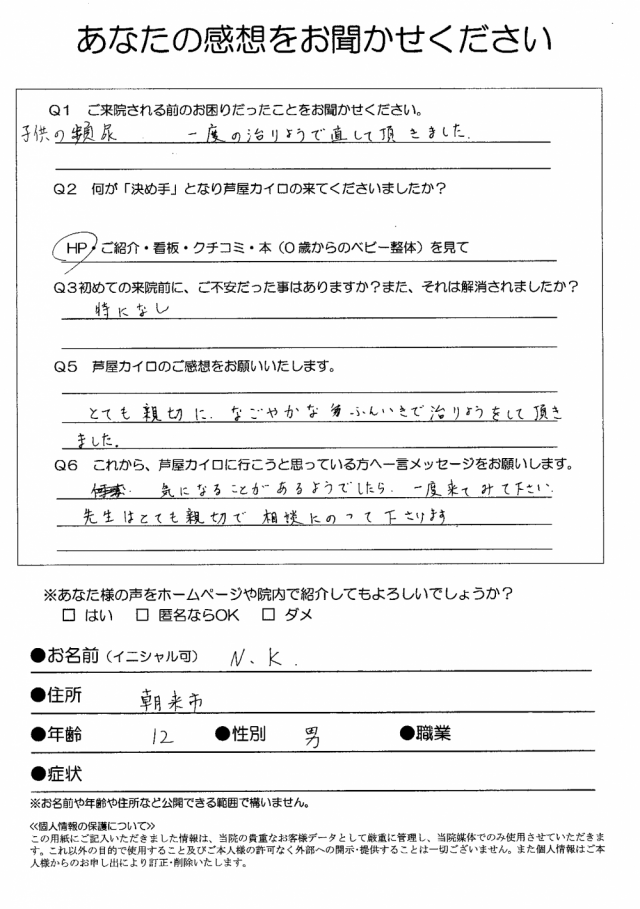 あなたの感想をお聞かせください
Q1　ご来院される前のお困りだったことをお聞かせください。
子供の頻尿　一度の治りょうで直して頂きました.
Q2　何が「決め手」となり芦屋カイロの来てくださいましたか？
HP・ご紹介・看板・クチコミ・本（0歳からのベビー整体）を見て
Q3初めての来院前に、ご不安だった事はありますか？また、それは解消されましたか？
特になし
Q5　芦屋カイロのご感想をお願いいたします。
とても親切に、なごやかなふんいきで治りょうをして頂き
ました.
Q6　これから、芦屋カイロに行こうと思っている方へ一言メッセージをお願いします。
気になることがあるようでしたら、一度来てみて下さい.
先生はとても親切で相談にのって下さります
※あなた様の声をホームページや院内で紹介してもよろしいでしょうか？
□ はい　□ 匿名ならOK　□ ダメ
●お名前（イニシャル可）　N.K.
●住所　朝来市
●年齢　12　●性別　男　●職業
●症状
※お名前や年齢や住所など公開できる範囲で構いません。
≪個人情報の保護について≫
この用紙にご記入いただきました情報は、当院の貴重なお客様データとして厳重に管理し、当院媒体でのみ使用させていただきま
す。これ以外の目的で使用すること及びご本人様の許可なく外部への開示・提供することは一切ございません。また個人情報はご本
人様からのお申し出により訂正・削除いたします。